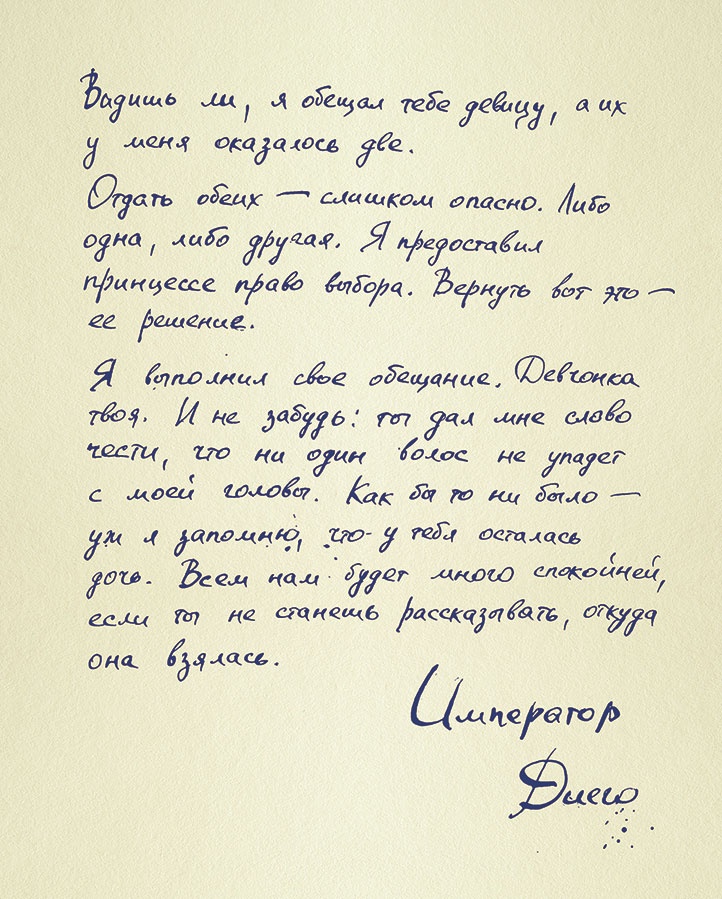 Видишь ли, я обещал тебе девицу, а их
у меня оказалось две.
Отдать обеих — слишком опасно. Либо
одна, либо другая. Я предоставил
принцессе право выбора. Вернуть вот это —
ее решение.
Я выполнил свое обещание. Девчонка
твоя. И не забудь: ты дал мне слово
чести, что ни один волос не упадет
с моей головы. Как бы то ни было —
уж я запомню, что у тебя осталась
дочь. Всем нам будет много спокойней,
если ты не станешь рассказывать, откуда
она взялась.
Император
Диего